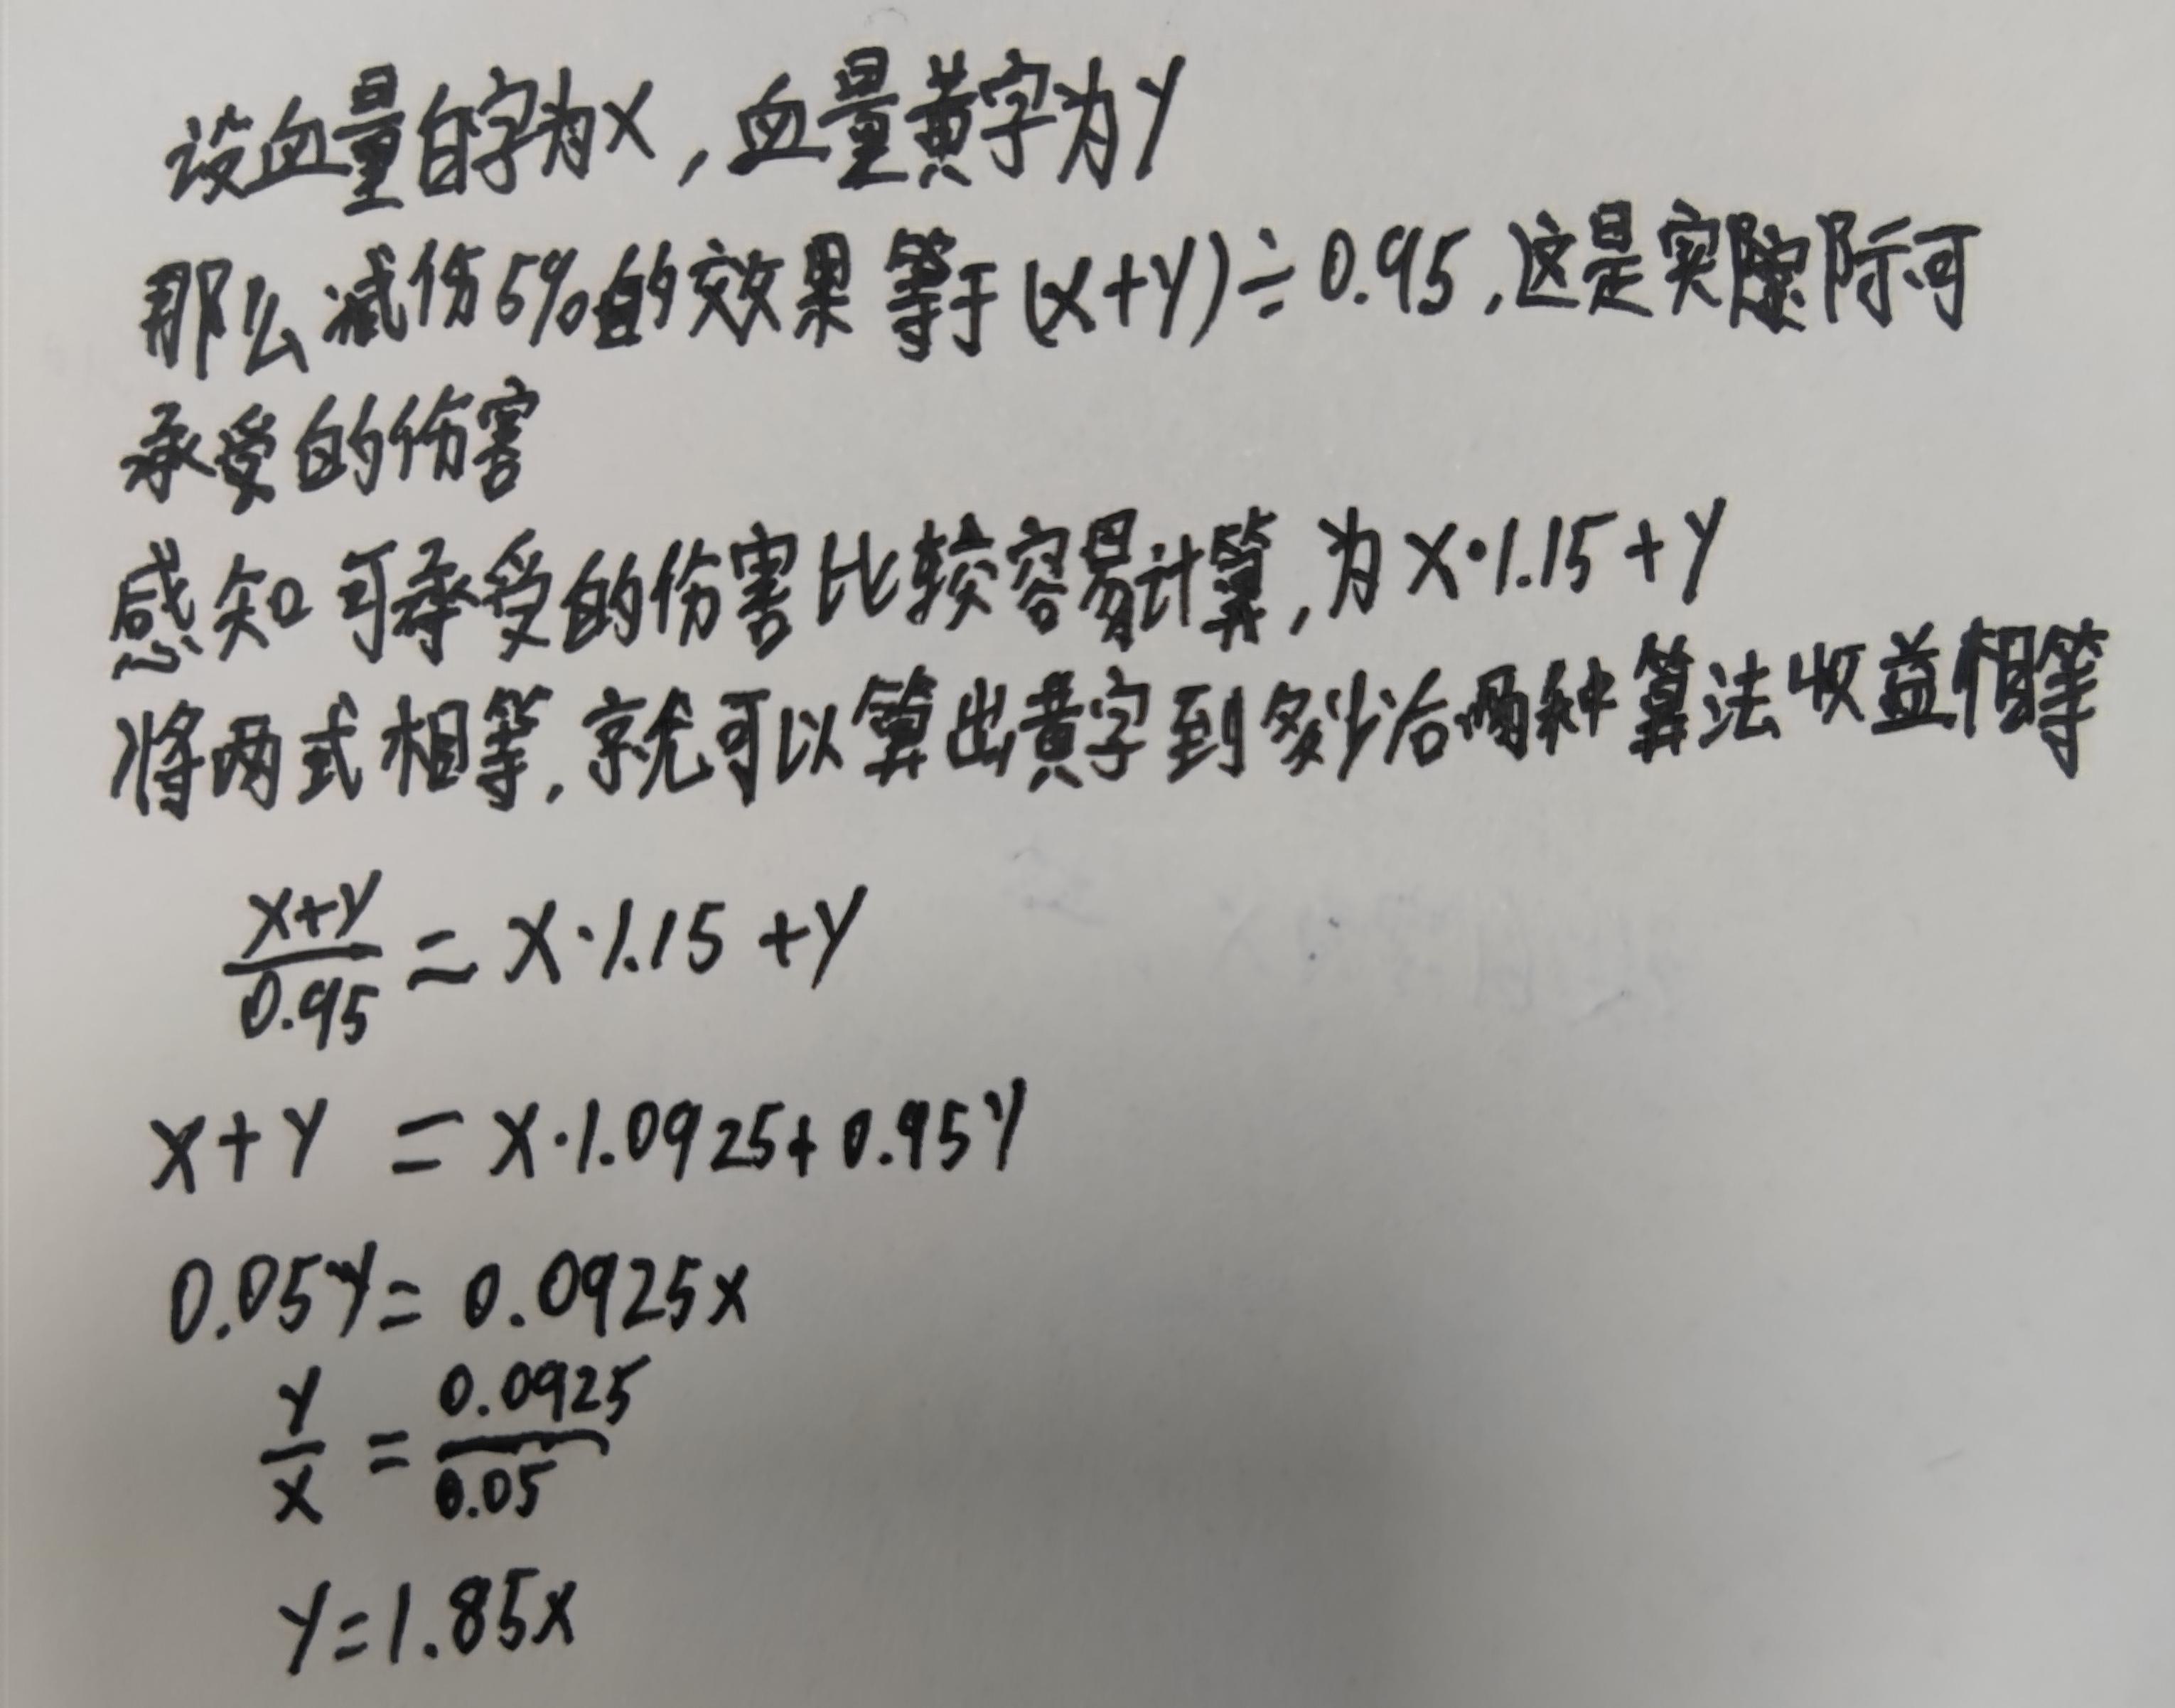 设血量白字为X,血量黄字为Y
那么减伤5%的效果等于(X+Y)÷0.95,这是实际可
承受的伤害
感知可承受的伤害比较容易计算,为X·1.15+Y
将两式相等,就可以算出黄字到多少后两种算法收益相等
X+Y/0.95=X·1.15+Y
X+Y=X·1.0925+0.95Y
0.05Y=0.0925X
Y/X=0.0925/0.05
Y=1.85X